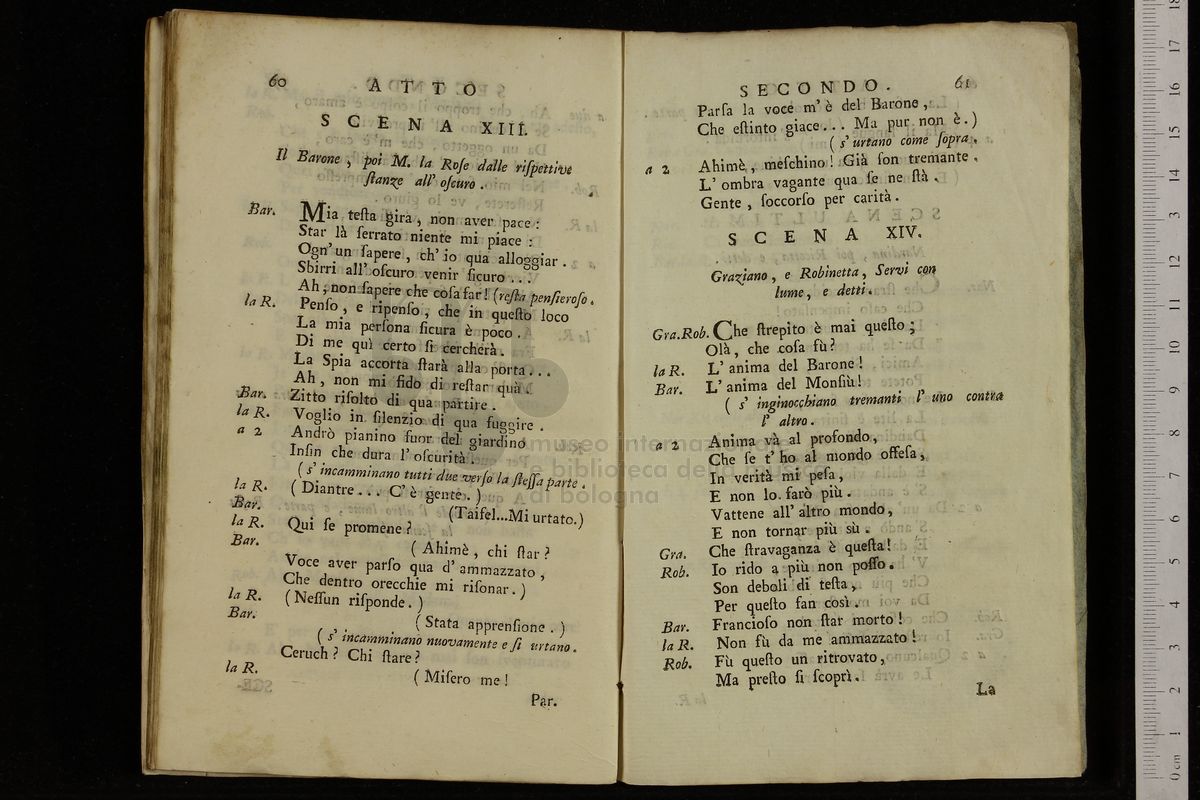 60
ATTO
SCENA XIII.
Il Barone, poi M. la Roſe dalle riſpettive
ſtanze all' oſcuro.
Bar. Mia teſta gira, non aver pace:
Star là ſerrato niente mi piace:
Ogn'un ſapere, ch'io qua alloggiar.
Sbirri all'oſcuro venir ſicuro...
Ah, non ſapere che coſa far! (reſta penſieroſo.
la R. Penſo, e ripenſo, che in queſto loco
La mia perſona ſicura è poco.
Di me quì certo ſi cercherà.
La Spia accorta ſtarà alla porta...
Ah, non mi fido di reſtar quà.
Bar. Zitto riſolto di qua partire.
la R. Voglio in ſilenzio di qua fuggire.
a 2 Andrò pianino fuor del giardino
Inſin che dura l'oſcurità.
(s'incamminano tutti due verſo la ſteſſa parte.
la R. (Diantre... C'è gente.)
Bar. (Taifel...Mi urtato.)
la R. Qui ſe promene?
Bar. (Ahimè, chi ſtar?
Voce aver parſo qua d'ammazzato,
Che dentro orecchie mi riſonar.)
la R. (Neſſun riſponde.)
Bar. (Stata apprenſione.)
(s'incamminano nuovamente e ſi urtano.
Ceruch? Chi ſtare?
la R. (Miſero me!
Par.
SECONDO.
61
Parſa la voce m'è del Barone,
Che eſtinto giace... Ma pur non è.)
(s'urtano come ſopra.
a 2 Ahimè, meſchino! Già ſon tremante.
L'ombra vagante qua ſe ne ſtà.
Gente, ſoccorſo per carità.
SCENA XIV.
Graziano, e Robinetta, Servi con
lume, e detti.
Gra.Rob. Che ſtrepito è mai queſto;
Olà, che coſa fù?
la R. L'anima del Barone!
Bar. L'anima del Monſiù!
(s'inginocchiano tremanti l'uno contra
l'altro.
a 2 Anima và al profondo,
Che ſe t'ho al mondo offeſa,
In verità mi peſa,
E non lo farò più.
Vattene all'altro mondo,
E non tornar più sù.
Gra. Che ſtravaganza è queſta!
Rob. Io rido a più non poſſo.
Son deboli di teſta,
Per queſto fan così.
Bar. Francioſo non ſtar morto!
la R. Non fù da me ammazzato!
Rob. Fù queſto un ritrovato,
Ma preſto ſi ſcoprì.
La
museo internazionale
e biblioteca della musica
di bologna